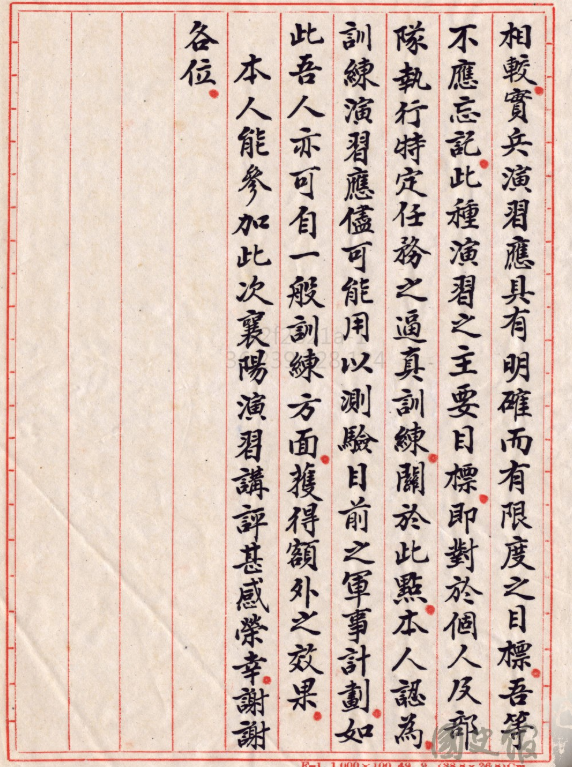 相較實兵演習應具有明確而有限度之目標吾等
不應忘記此種演習之主要目標即對於個人及部
隊執行特定任務之逼真訓練關於此點本人認為
訓練演習應儘可能用以測驗目前之軍事計劃如
此吾人亦可自一般訓練方面獲得額外之效果
本人能參加此次襄陽演習講評甚感榮幸謝謝
各位